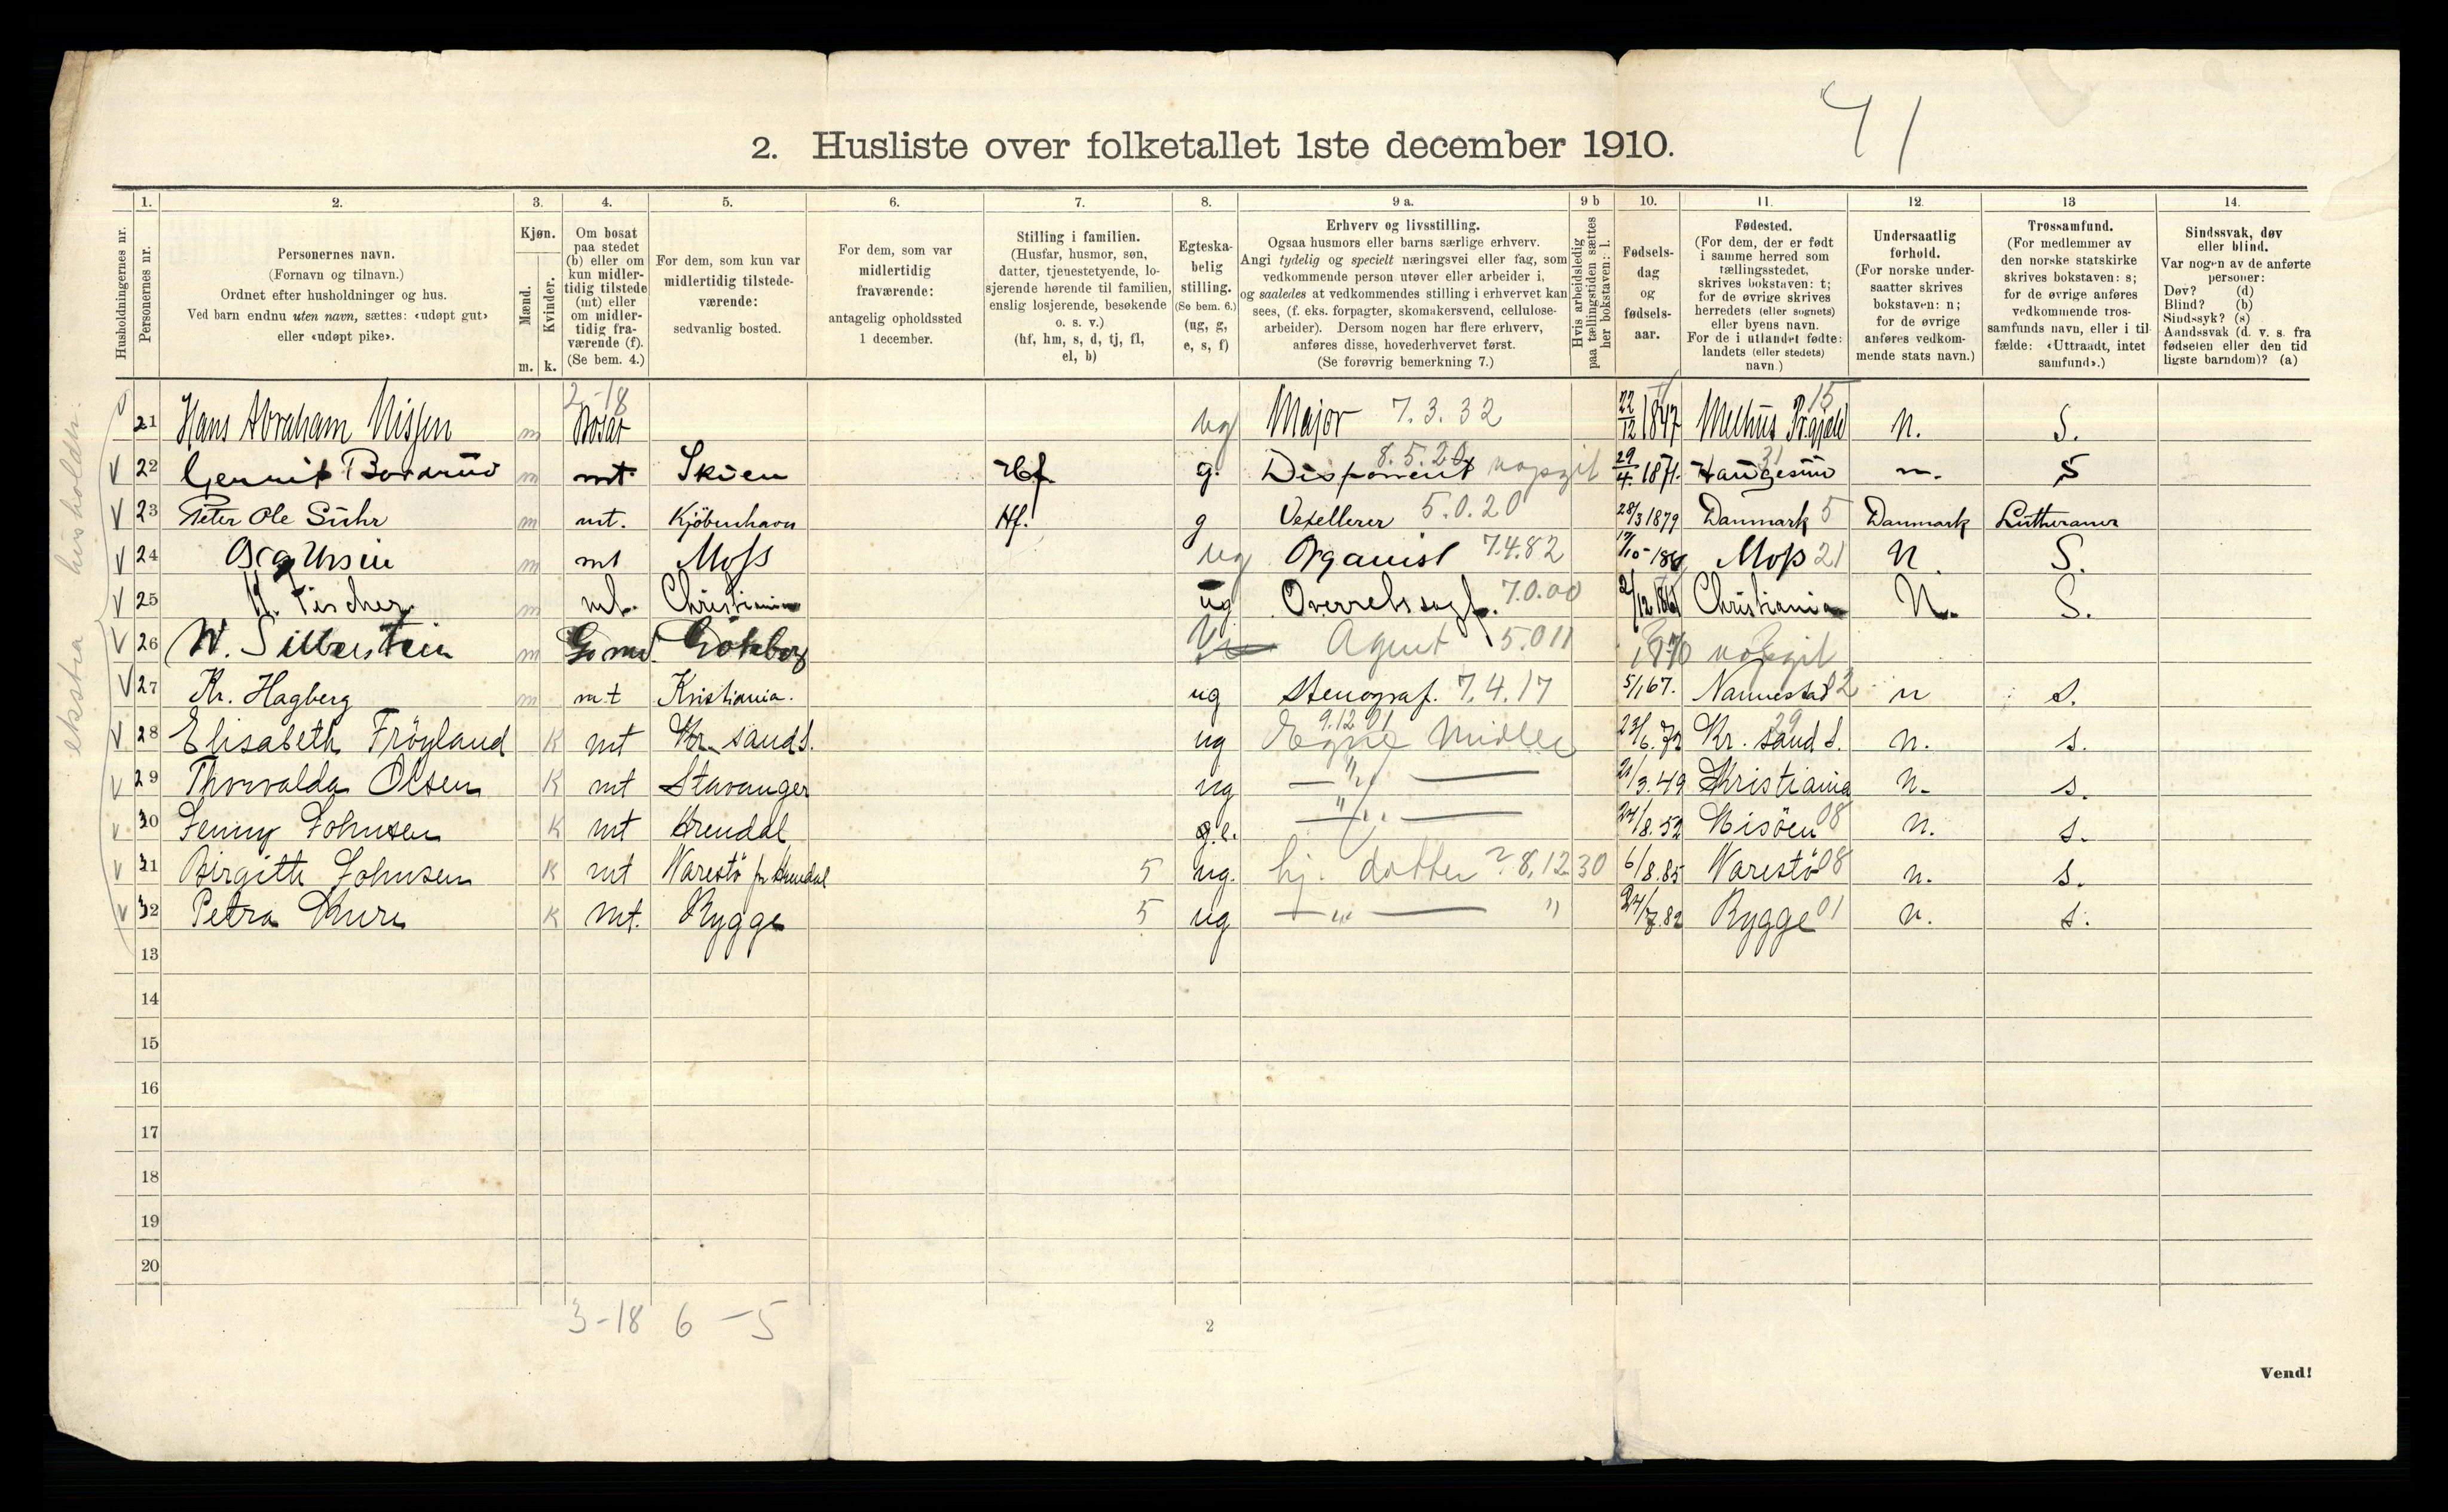 41
2. Husliste over folketallet 1ste december 1910.
Husholdningernes nr.
1. Personernes nr.
2. Personernes navn. (Fornavn og tilnavn.) Ordnet efter husholdninger og hus. Ved barn endnu uten navn, sættes: «udøpt gut» eller «udøpt pike».
3. Kjøn. Mænd. m. Kvinder. k.
4. Om bosat paa stedet (b) eller om kun midlertidig tilstede (mt) eller om midlertidig fraværende (f). (Se bem. 4.)
5. For dem, som kun var midlertidig tilstedeværende: sedvanlig bosted.
6. For dem, som var midlertidig fraværende: antagelig opholdssted 1 december.
7. Stilling i familien. (Husfar, husmor, søn, datter, tjenestetyende, losjerende hørende til familien, enslig losjerende, besøkende o. s. v.) (hf, hm, s, d, tj, fl, el, b)
8. Egteskabelig stilling. (Se bem. 6.) (ug, g, e, s, f)
9 a. Erhverv og livsstilling. Ogsaa husmors eller barns særlige erhverv. Angi tydelig og specielt næringsvei eller fag, som vedkommende person utøver eller arbeider i, og saaledes at vedkommendes stilling i erhvervet kan sees, (f. eks. forpagter, skomakersvend, cellulosearbeider). Dersom nogen har flere erhverv, anføres disse, hovederhvervet først. (Se forøvrig bemerkning 7.)
9 b Hvis arbeidsledig paa tællingstiden sættes her bokstaven: l.
10. Fødselsdag og fødselsaar.
11. Fødested. (For dem, der er født i samme herred som tællingsstedet, skrives bokstaven: t; for de øvrige skrives herredets (eller sognets) eller byens navn. For de i utlandet fødte: landets (eller stedets) navn.)
12. Undersaatlig forhold. (For norske undersaatter skrives bokstaven: n; for de øvrige anføres vedkommende stats navn.)
13 Trossamfund. (For medlemmer av den norske statskirke skrives bokstaven: s; for de øvrige anføres vedkommende trossamfunds navn, eller i tilfælde: «Uttraadt, intet samfund».)
14. Sindssvak, døv eller blind. Var nogen av de anførte personer: Døv? (d) Blind? (b) Sindssyk? (s) Aandssvak (d. v. s. fra fødselen eller den tidligste barndom)? (a)
ekstra husholdn.
2-18 15
21 Hans Abraham Nissen m Bosat ug Major 7.3.32 22/12 1847 Melhus n. S.
v 22 Gerrit m mt. Skien Hf g. Disponent 8.5.20 uopgit 29/4 1871. Haugesund 31 n. S
v 23 Peter Ole Suhr m mt. Kjöbenhavn Hf. g Vexellerer 5.0.20 28/3 1879 Danmark 5 Danmark Lutheraner
v 24 Ursin m mt Moss ug Organist 7.4.82 Moss 21 N. S.
v 25 Fischer m mt. Christiania ug 7.0.00 Christiania N. S.
v 26 W. Silberstein m Göteborg Agent 5.011 1870 uopgit
v 27 Kr. Hagberg m mt Kristiania. ug Stenograf. 7.4.17 5/1 67. Nannestad 2 n s.
v 28 Elisabeth Fröyland K mt Kr. sand S. ug Egne Midler 9.12.01 23/6.72 Kr. sand S. 29 n. s.
v 29 Thorvalda Olsen K mt Stavanger ug — " — 21/3.49 Kristiania n. s.
v 30 Jenny Johnsen K mt Arendal — " — 24/8.52 Hisöen 08 n. s.
v 31 Birgitte Johnsen K mt Narestö pr Arendal 5 ug. hj. datter ? 8.12.30 6/8.85 Narestö 08 n. s.
v 32 Petra K mt. Rygge 5 ug — " — " Rygge 01 n. s.
13
14
15
16
17
18
19
20
3-18 6-5
2
Vend!